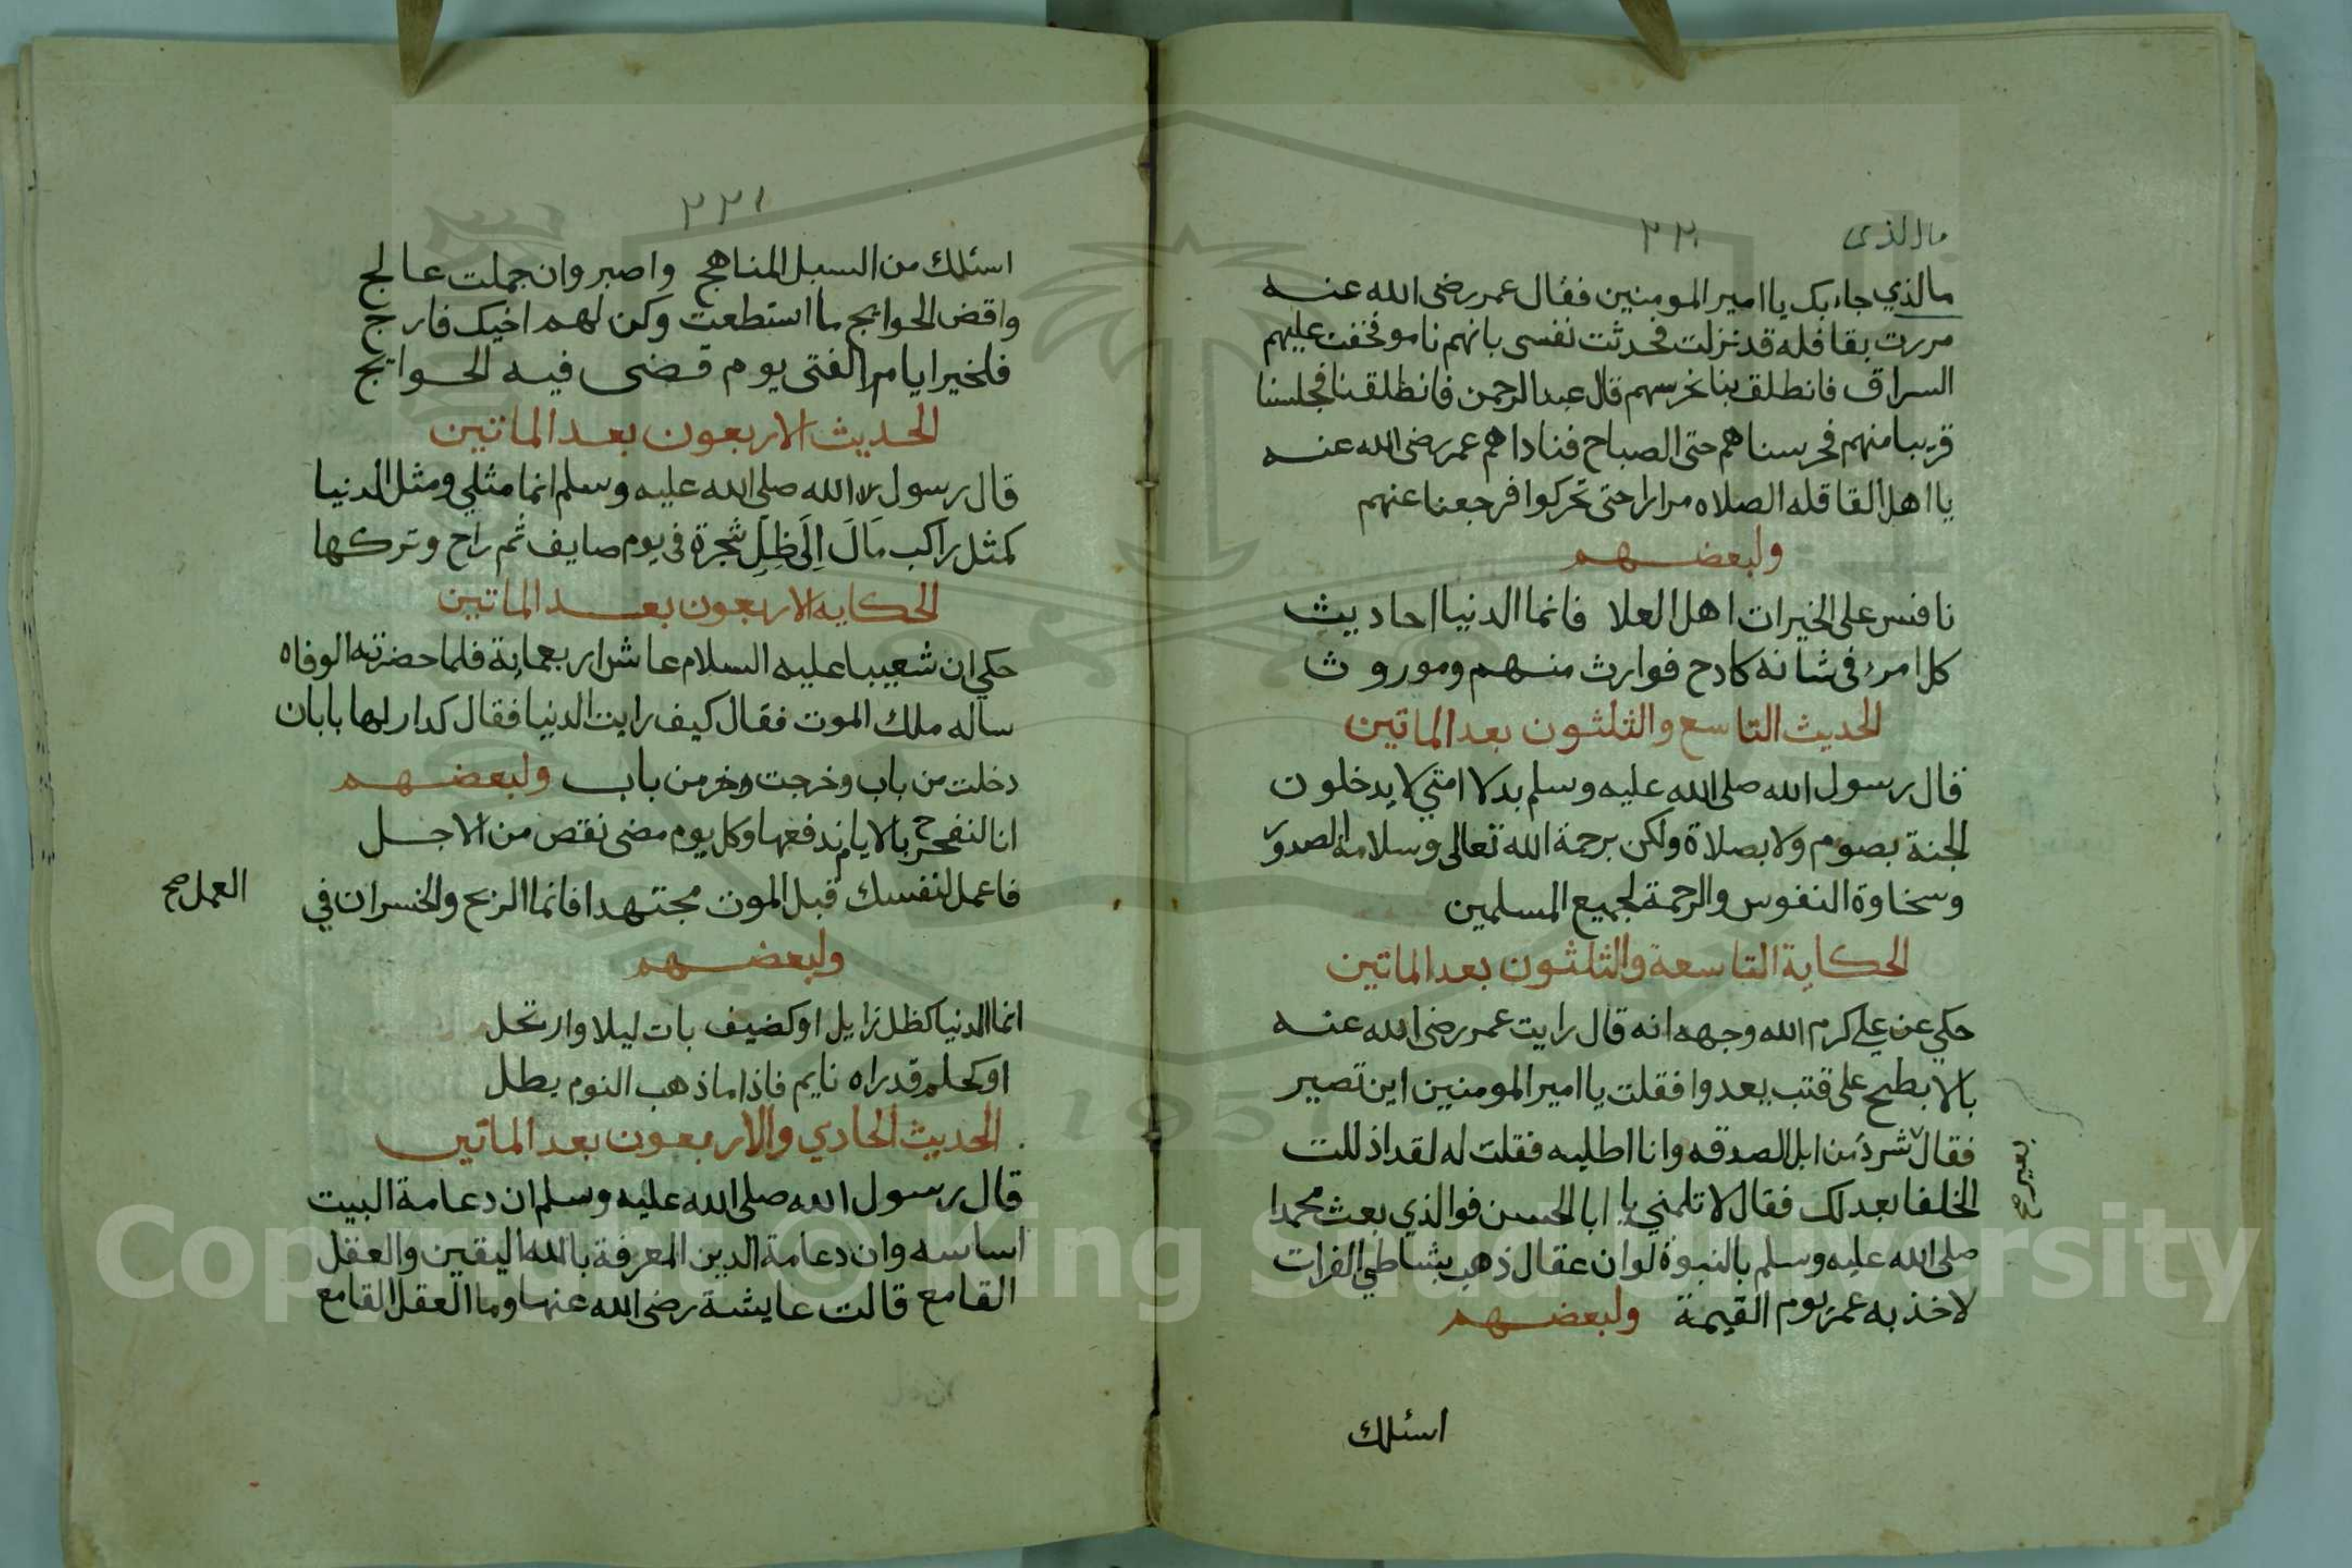 مالذى
٢٢٠
مالذي جاء بك يا امير المومنين فقال عمر رضى الله عنه
مررت بقافله قد نزلت فحدثت نفسى بانهم ناموا فخفت عليهم
السراق فانطلق بنا نحرسهم قال عبد الرحمن فانطلقنا فجلسنا
قريبا منهم فحرسناهم حتى الصباح فناداهم عمر رضى الله عنه
يا اهل القافله الصلاه مرارا حتى تحركوا فرجعنا عنهم
ولبعضهم
نافس على الخيرات اهل العلا فانما الدنيا احاديث
كل امرء فى شانه كادح فوارث منهم وموروث
الحديث التاسع والثلثون بعد الماتين
قال رسول الله صلى الله عليه وسلم بدلا امتي لا يدخلون
الجنة بصوم ولا بصلاة ولكن برحمة الله تعالى وسلامة الصدور
وسخاوة النفوس والرحمة لجميع المسلمين
الحكاية التاسعة والثلثون بعد الماتين
حكي عن علي كرم الله وجهه انه قال رايت عمر رضى الله عنه
بالابطح على قتب يعدوا فقلت يا امير المومنين اين تصير
فقال شرد من ابل الصدقه وانا اطلبه فقلت له لقد اذللت
بعير صح
الخلفا بعدك فقال لا تلمني يا ابا الحسن فوالذي بعث محمدا
صلى الله عليه وسلم بالنبوة لو ان عقال ذهب بشاطي الفرات
لاخذ به عمر يوم القيمة ولبعضهم
اسئلك
٢٢١
اسئلك من السبل المناهج واصبر وان حملت عالج
واقض الحوايج ما استطعت وكن لهم اخيك فارج
فلخير ايام الفتى يوم قضى فيه الحوائج
الحديث الاربعون بعد الماتين
قال رسول الله صلى الله عليه وسلم انما مثلي ومثل الدنيا
كمثل راكب مَالَ اِلَى ظِلِّ شجرة فى يوم صايف ثم راح وتركها
الحكايه الاربعون بعد الماتين
حكي ان شعيبا عليه السلام عاش اربعماية فلما حضرته الوفاه
ساله ملك الموت فقال كيف رايت الدنيا فقال كدار لها بابان
دخلت من باب وخرجت من باب ولبعضهم
انا لنفرح بالايام ندفعها وكل يوم مضى نقص من الاجل
فاعمل لنفسك قبل الموت مجتهدا فانما الربح والخسران في
العمل صح
ولبعضهم
انما الدنيا كظل زايل او كضيف بات ليلا وارتحل
او كحلم قد راه نايم فاذا ما ذهب النوم بطل
الحديث الحادي والاربعون بعد الماتين
قال رسول الله صلى الله عليه وسلم ان دعامة البيت
اساسه وان دعامة الدين المعرفة بالله اليقين والعقل
القامع قالت عايشة رضى الله عنها وما العقل القامع
Copyright © King Saud University
1957